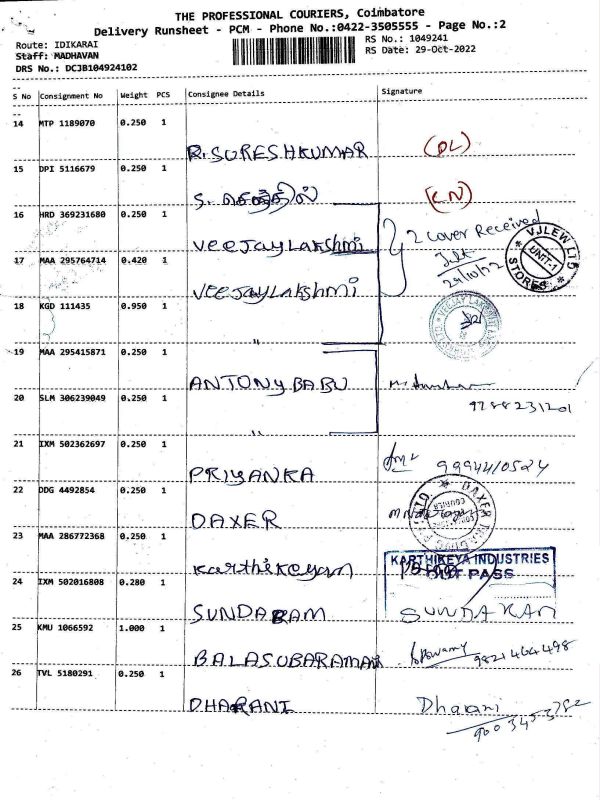 THE PROFESSIONAL COURIERS, Coimbatore
Delivery Runsheet - PCM - Phone No.:0422-3505555 - Page No.:2
Route: IDIKARAI
RS No.: 1049241
Staff: MADHAVAN
RS Date: 29-Oct-2022
DRS No.: DCJB104924102
S No Consignment No Weight PCS Consignee Details Signature
14 MTP 1189070 0.250 1
R. SURESHKUMAR (DL)
15 DPI 5116679 0.250 1
S. செந்தில் (LN)
16 HRD 369231680 0.250 1
Veejaylakshmi 2 Cover Received
17 MAA 295764714 0.420 1
VJLEW LTD
UNIT-1
STORES
Veejaylakshmi
18 KGD 111435 0.950 1
"
19 MAA 295415871 0.250 1
ANTONY BABU
20 SLM 306239049 0.250 1
9788231201
"
21 IXM 502362697 0.250 1
PRIYANKA 9994410524
22 DDG 4492854 0.250 1
DAXER
23 MAA 286772368 0.250 1
KARTHIKEYA INDUSTRIES
OUT PASS
Karthikeyan
24 IXM 502016808 0.280 1
SUNDARAM SUNDARAM
25 KMU 1066592 1.000 1
BALASUBARAMAN 9821464498
26 TVL 5180291 0.250 1
DHARANI Dharani